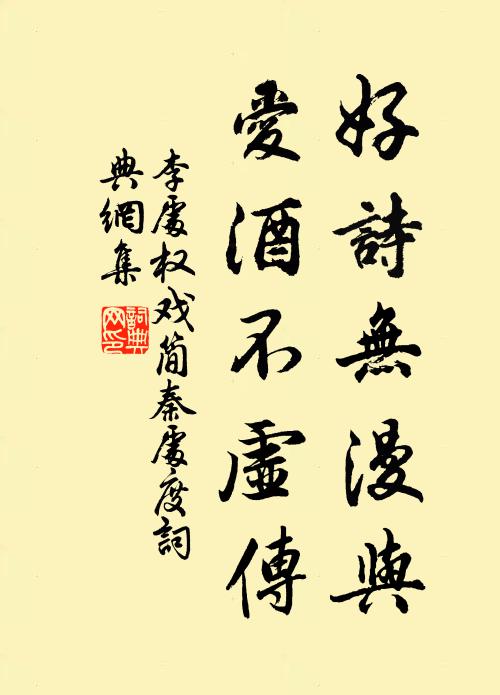 好詩無漫與
愛酒不虛傳
李處权戏简秦處度詞
典網集
詞典网印